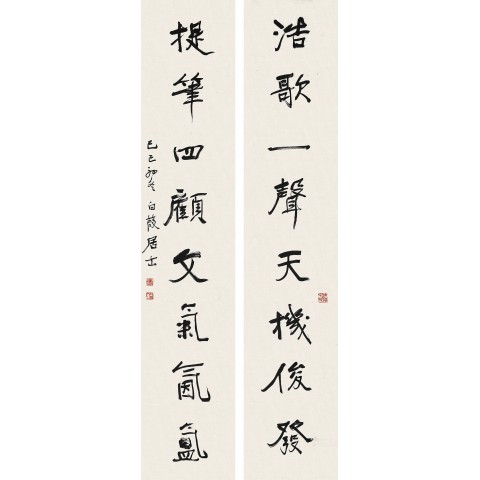 浩歌一聲天機俊發
提筆四顧文氣氤氳
己巳初冬白居士